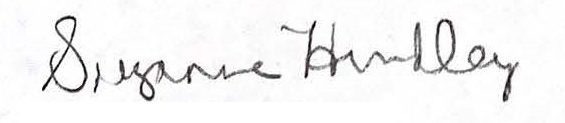 Suzanne Hindley